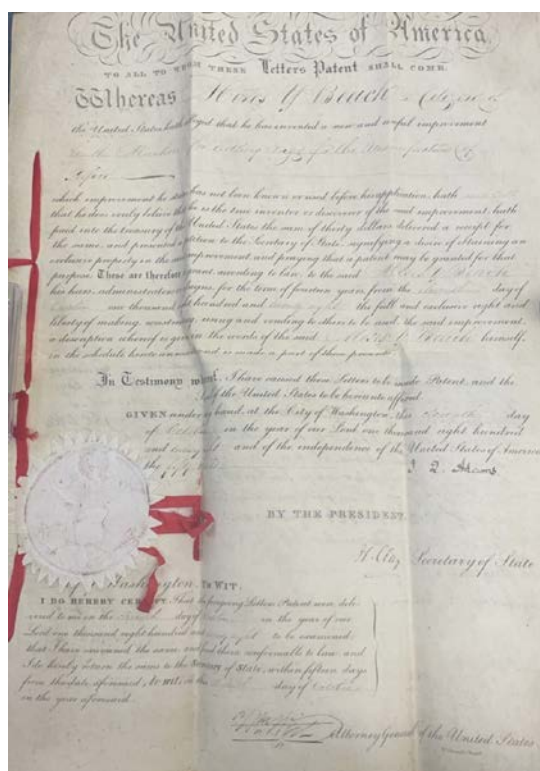 The United States of America
TO ALL TO WHOM THESE Letters Patent SHALL COME.
Whereas Moses Y Beach a Citizen of
the United States hath alleged that he has invented a new and useful improvement
in the Machine for cutting Rags for the Manufacture of
Paper
which improvement he states has not been known or used before his application, hath
that he does verily believe that he is the true inventor or discoverer of the said improvement, hath
paid into the treasury of the United States the sum of thirty dollars delivered a receipt for
the same, and presented a petition to the Secretary of State, signifying a desire of obtaining an
exclusive property in the said improvement and praying that a patent may be granted for that
purpose. These are therefore to grant, according to law, to the said
his heirs, administrators assigns, for the term of fourteen years, from the day of
one thousand eight hundred and twenty eight the full and exclusive right and
liberty of making, constructing, using and vending to others to be used the said improvement,
a description whereof is given in the words of the said himself,
in the schedule hereto annexed and is made a part of these presents.
In Testimony whereof, I have caused these Letters to be made Patent, and the
Seal of the United States to be hereunto affixed.
GIVEN under my hand, at the City of Washington, this day
of October in the year of our Lord one thousand eight hundred
and twenty eight and of the independence of the United States of America
the
J. Q. Adams
BY THE PRESIDENT.
H. Clay Secretary of State
City of Washington, TO WIT,
I DO HEREBY CERTIFY, That the foregoing Letters Patent were deli-
vered to me on the day of in the year of our
Lord one thousand eight hundred and twenty eight to be examined,
that I have examined the same, and find them conformable to law and
I do hereby return the same to the Secretary of State, within fifteen days
from the date aforesaid, to wit, on this day of October
in the year aforesaid.
Attorney General of the United States.